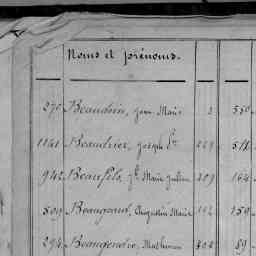 Noms et prénoms.
270 Beaudrin, Jean Marie 2 550
1141 Beaudrier, Joseph 229 511
942 Beaufils, Marie Julien 209 164
509 Beaugeard, Augustin Marie 192 159
294 Beaugendre, Mathurin 202 89